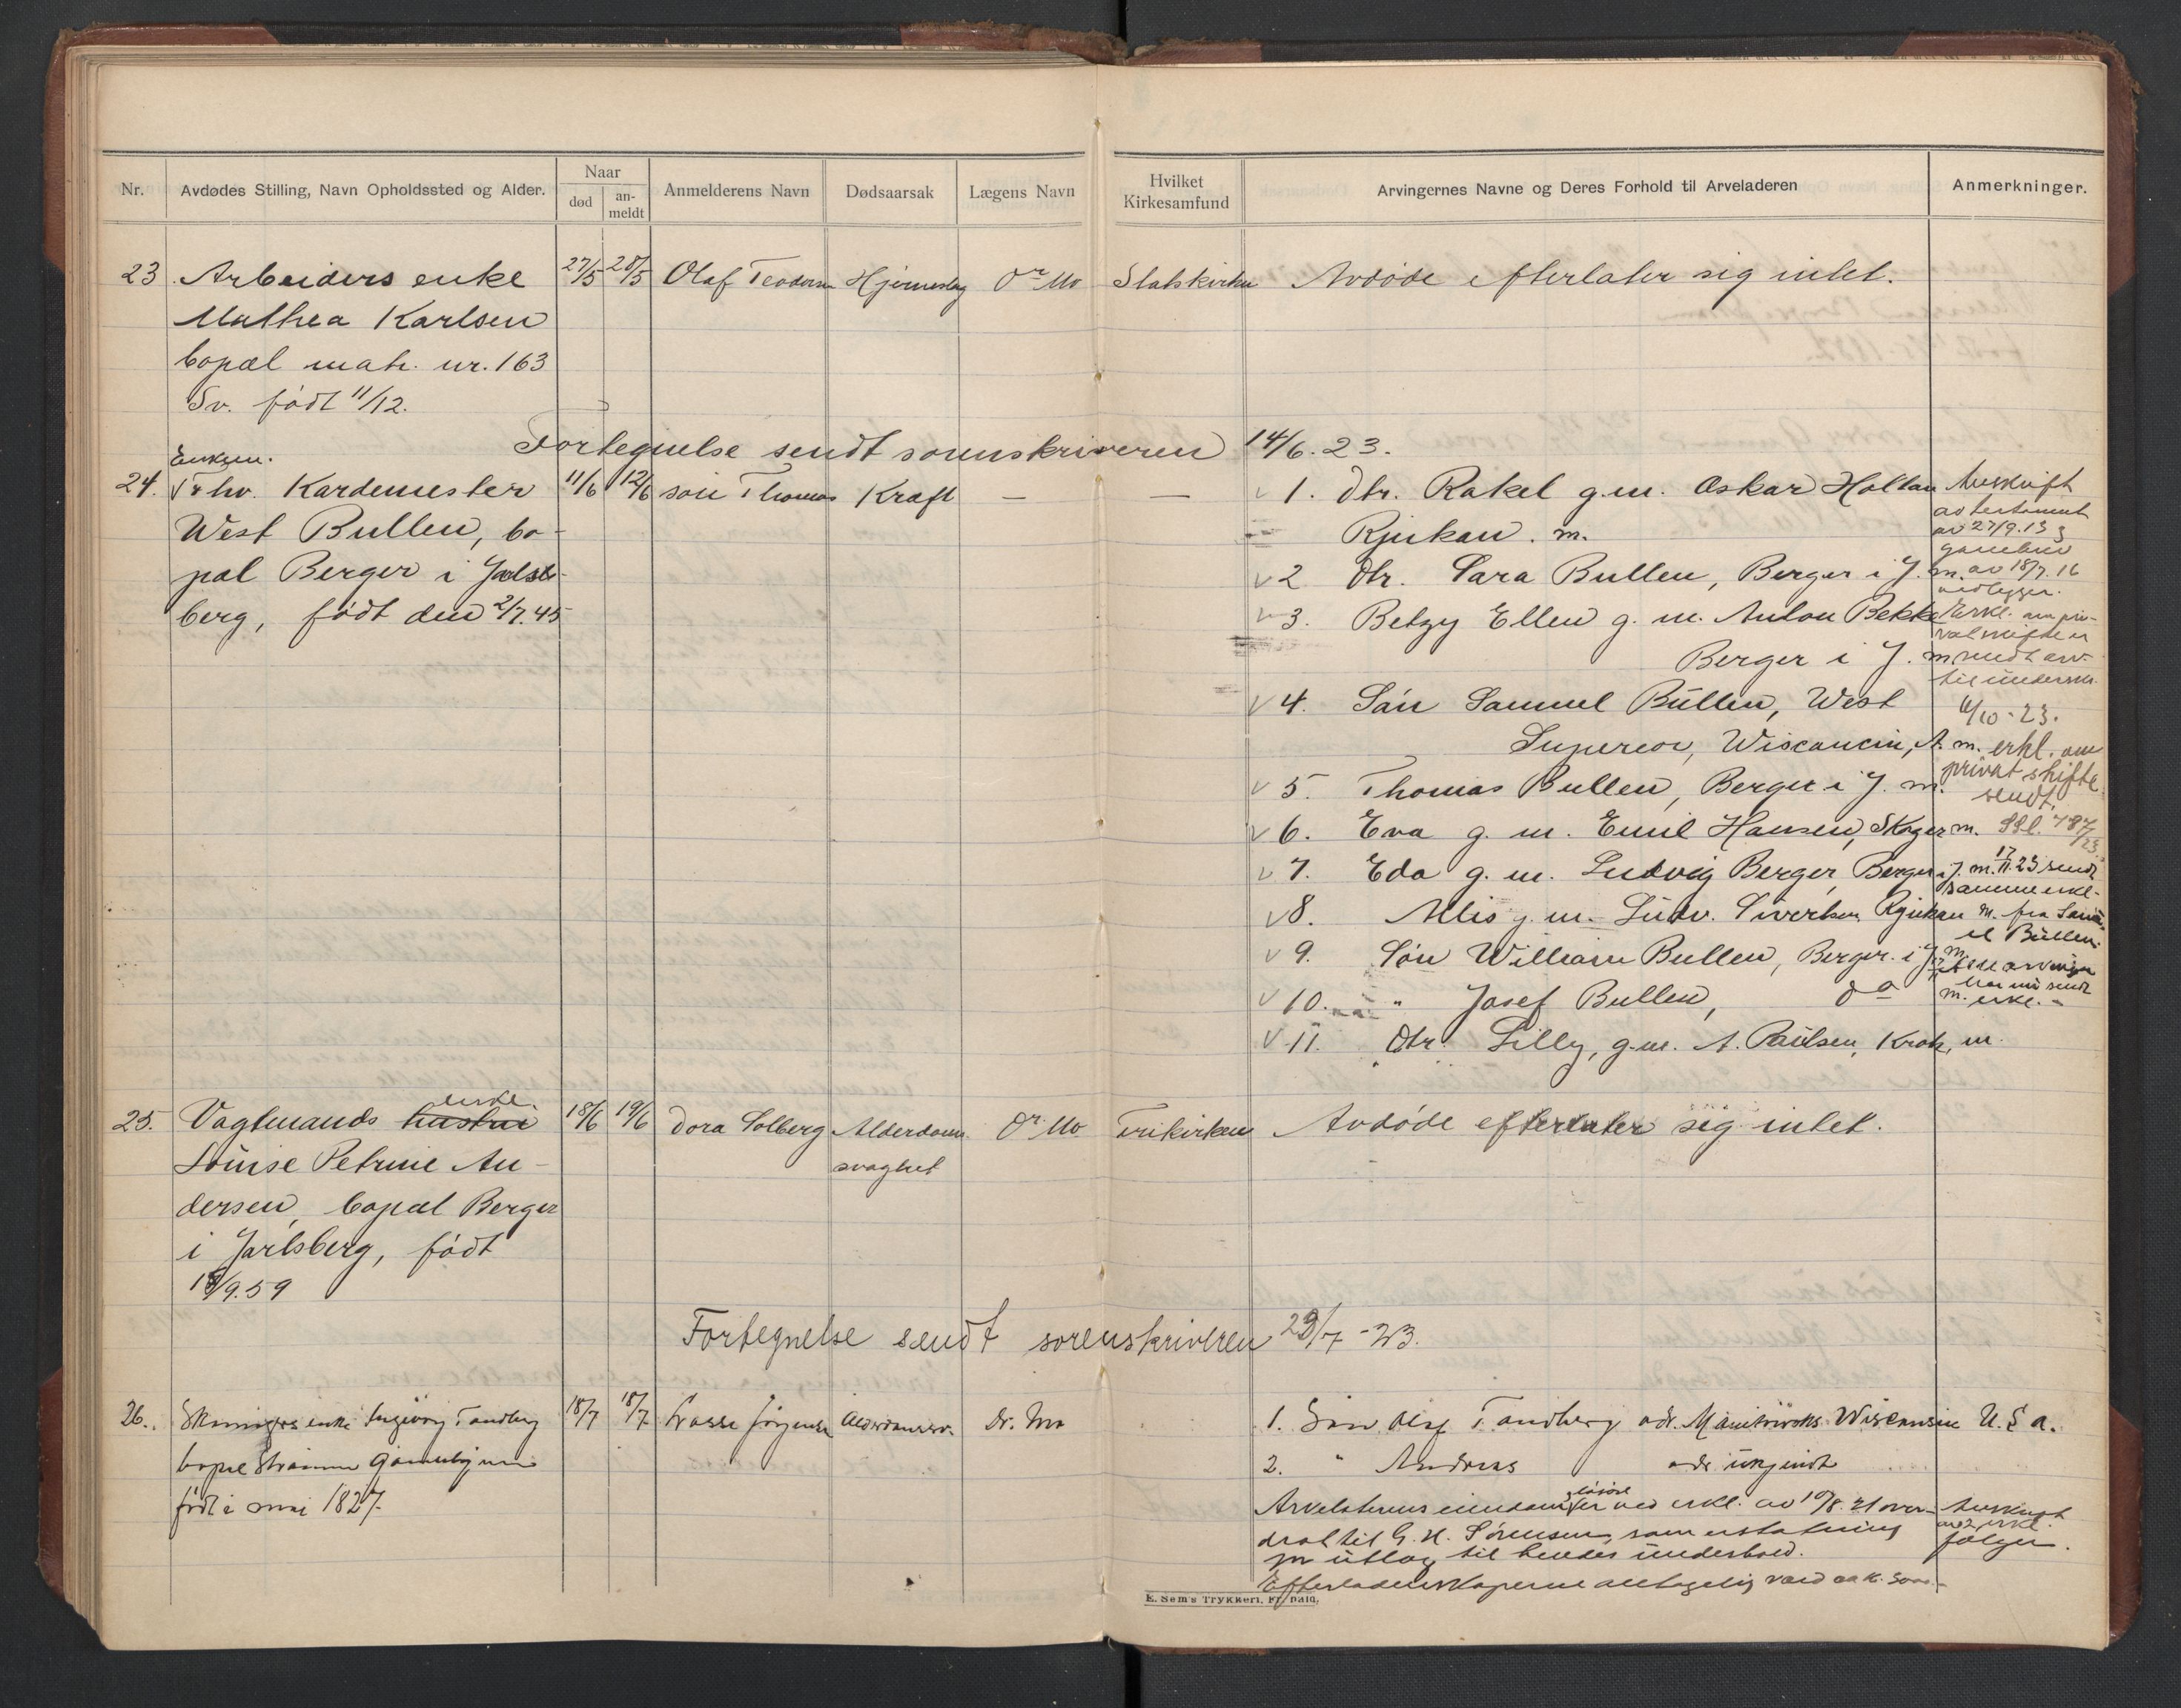 Nr.
Avdødes Stilling, Navn Opholdssted og Alder.
Naar
død
an-
meldt
Anmelderens Navn
Dødsaarsak
Lægens Navn
Hvilket
Kirkesamfund
Arvingernes Navne og Deres Forhold til Arveladeren
Anmerkninger.
23. Arbeiders enke 27/5 28/5 Olaf Teodorsen Hjerneslag Dr Mo Statskirken Avdøde efterlater sig intet.
Mathea Karlsen
bopæl matr. nr. 163
Sv. født 11/12.
Fortegnelse sendt sorenskriveren 14/6. 23.
Enkem.
24. Fhv. Kardemester 11/6 12/6 søn Thomas Kræft — — 1. Dtr. Rakel g.m. Oskar Holtan
West Bullen, bo-
pæl Berger i Jarls-
berg, født den 2/7. 45
Rjukan. m.
2 Dtr. Sara Bullen, Berger i J. m.
3. Betzy Ellen g. m. Anton Bekke
Berger i J. m
4. Søn Samuel Bullen, West
Superior, Wiscancin, A. m.
5. Thomas Bullen, Berger i J. m.
6. Eva g. m. Emil Hansen, Skoger m.
7. Eda g. m. Ludvig Berger, Berger i J. m.
8. Alis g. m. Ludv. Sivertsen Rjukan m.
9. Søn William Bullen, Berger. i J. m
10. " Josef Bullen, do m.
11. Dtr. Lilly, g.m. A. Paulsen, Krok, m.
Avskrift
av testament
av 27/9. 13 &
gavebrev
av 18/7. 16
vedlegger.
Erkl. om pri-
vat skifte er
sendt arv.
til underskr.
11/10-23.
erkl. om
privat skifte
sendt.
787/23.
17/11.23 sendt
samme erkl.
fra Samu-
el Bullen.
Alle arvinger
har nu sendt
erkl. -
25. Vagtmands hustru enke 18/6 19/6 Dora Solberg Alderdoms- Dr Mo Frikirken Avdøde efterlater sig intet.
svaghet
Louise Petrine An-
dersen, bopæl Berger
i Jarlsberg, født
/9.59
Fortegnelse sendt sorenskriveren 23/7-23.
26. enke Ingeborg Tandberg 18/7 18/7 Lasse Jørgensen Alderdomssv. Dr. Mo 1. Søn Olaf Tandberg adr. Wisconsin U.S.a.
bopæl Strømm Gamlehjem
født i mai 1827.
2. " Andreas adr. ukjendt
løsøre
Arvelaterens eiendom & er ved erkl. av 10/8. 21 over-
drat til G. H. Sørensen, som erstatning
for utlæg til hendes underhold.
Efterladenskaperne antagelig værd ca k. 500.-
Avskrift
av erkl.
følger.
E. Sem's Trykkeri, Fr.hald.